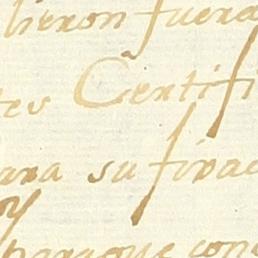 lieron fuera
tes Certifi
ara su firac
paraque con